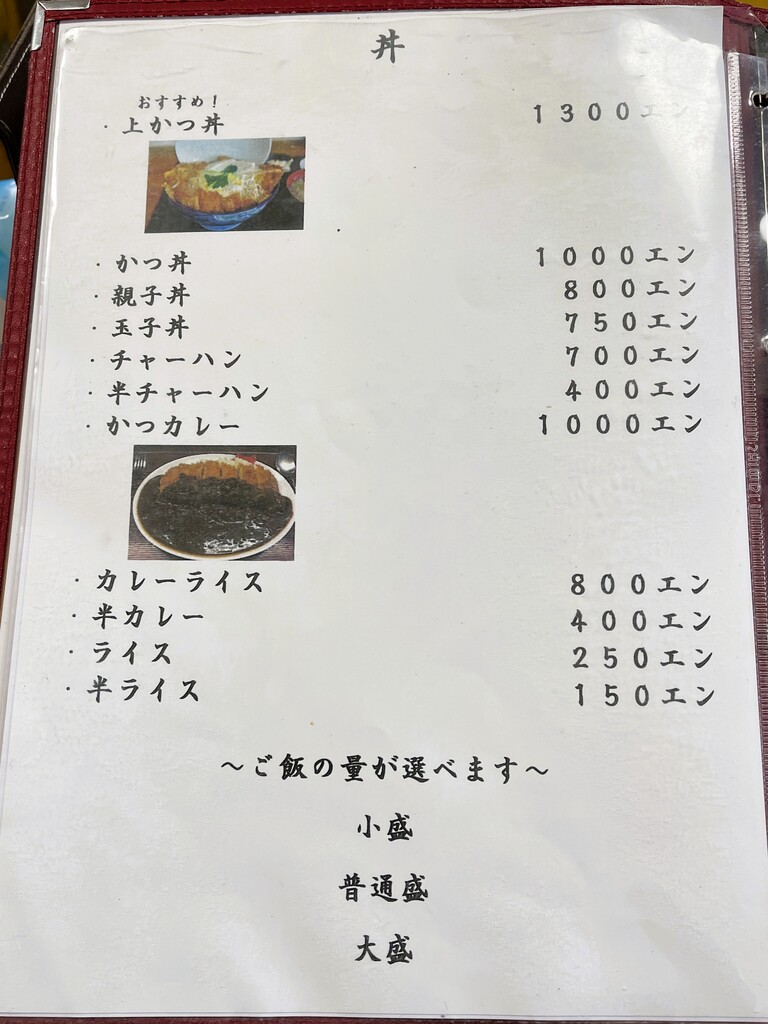 丼
おすすめ!
・上かつ丼 1300エン
・かつ丼 1000エン
・親子丼 800エン
・玉子丼 750エン
・チャーハン 700エン
・半チャーハン 400エン
・かつカレー 1000エン
・カレーライス 800エン
・半カレー 400エン
・ライス 250エン
・半ライス 150エン
～ご飯の量が選べます～
小盛
普通盛
大盛